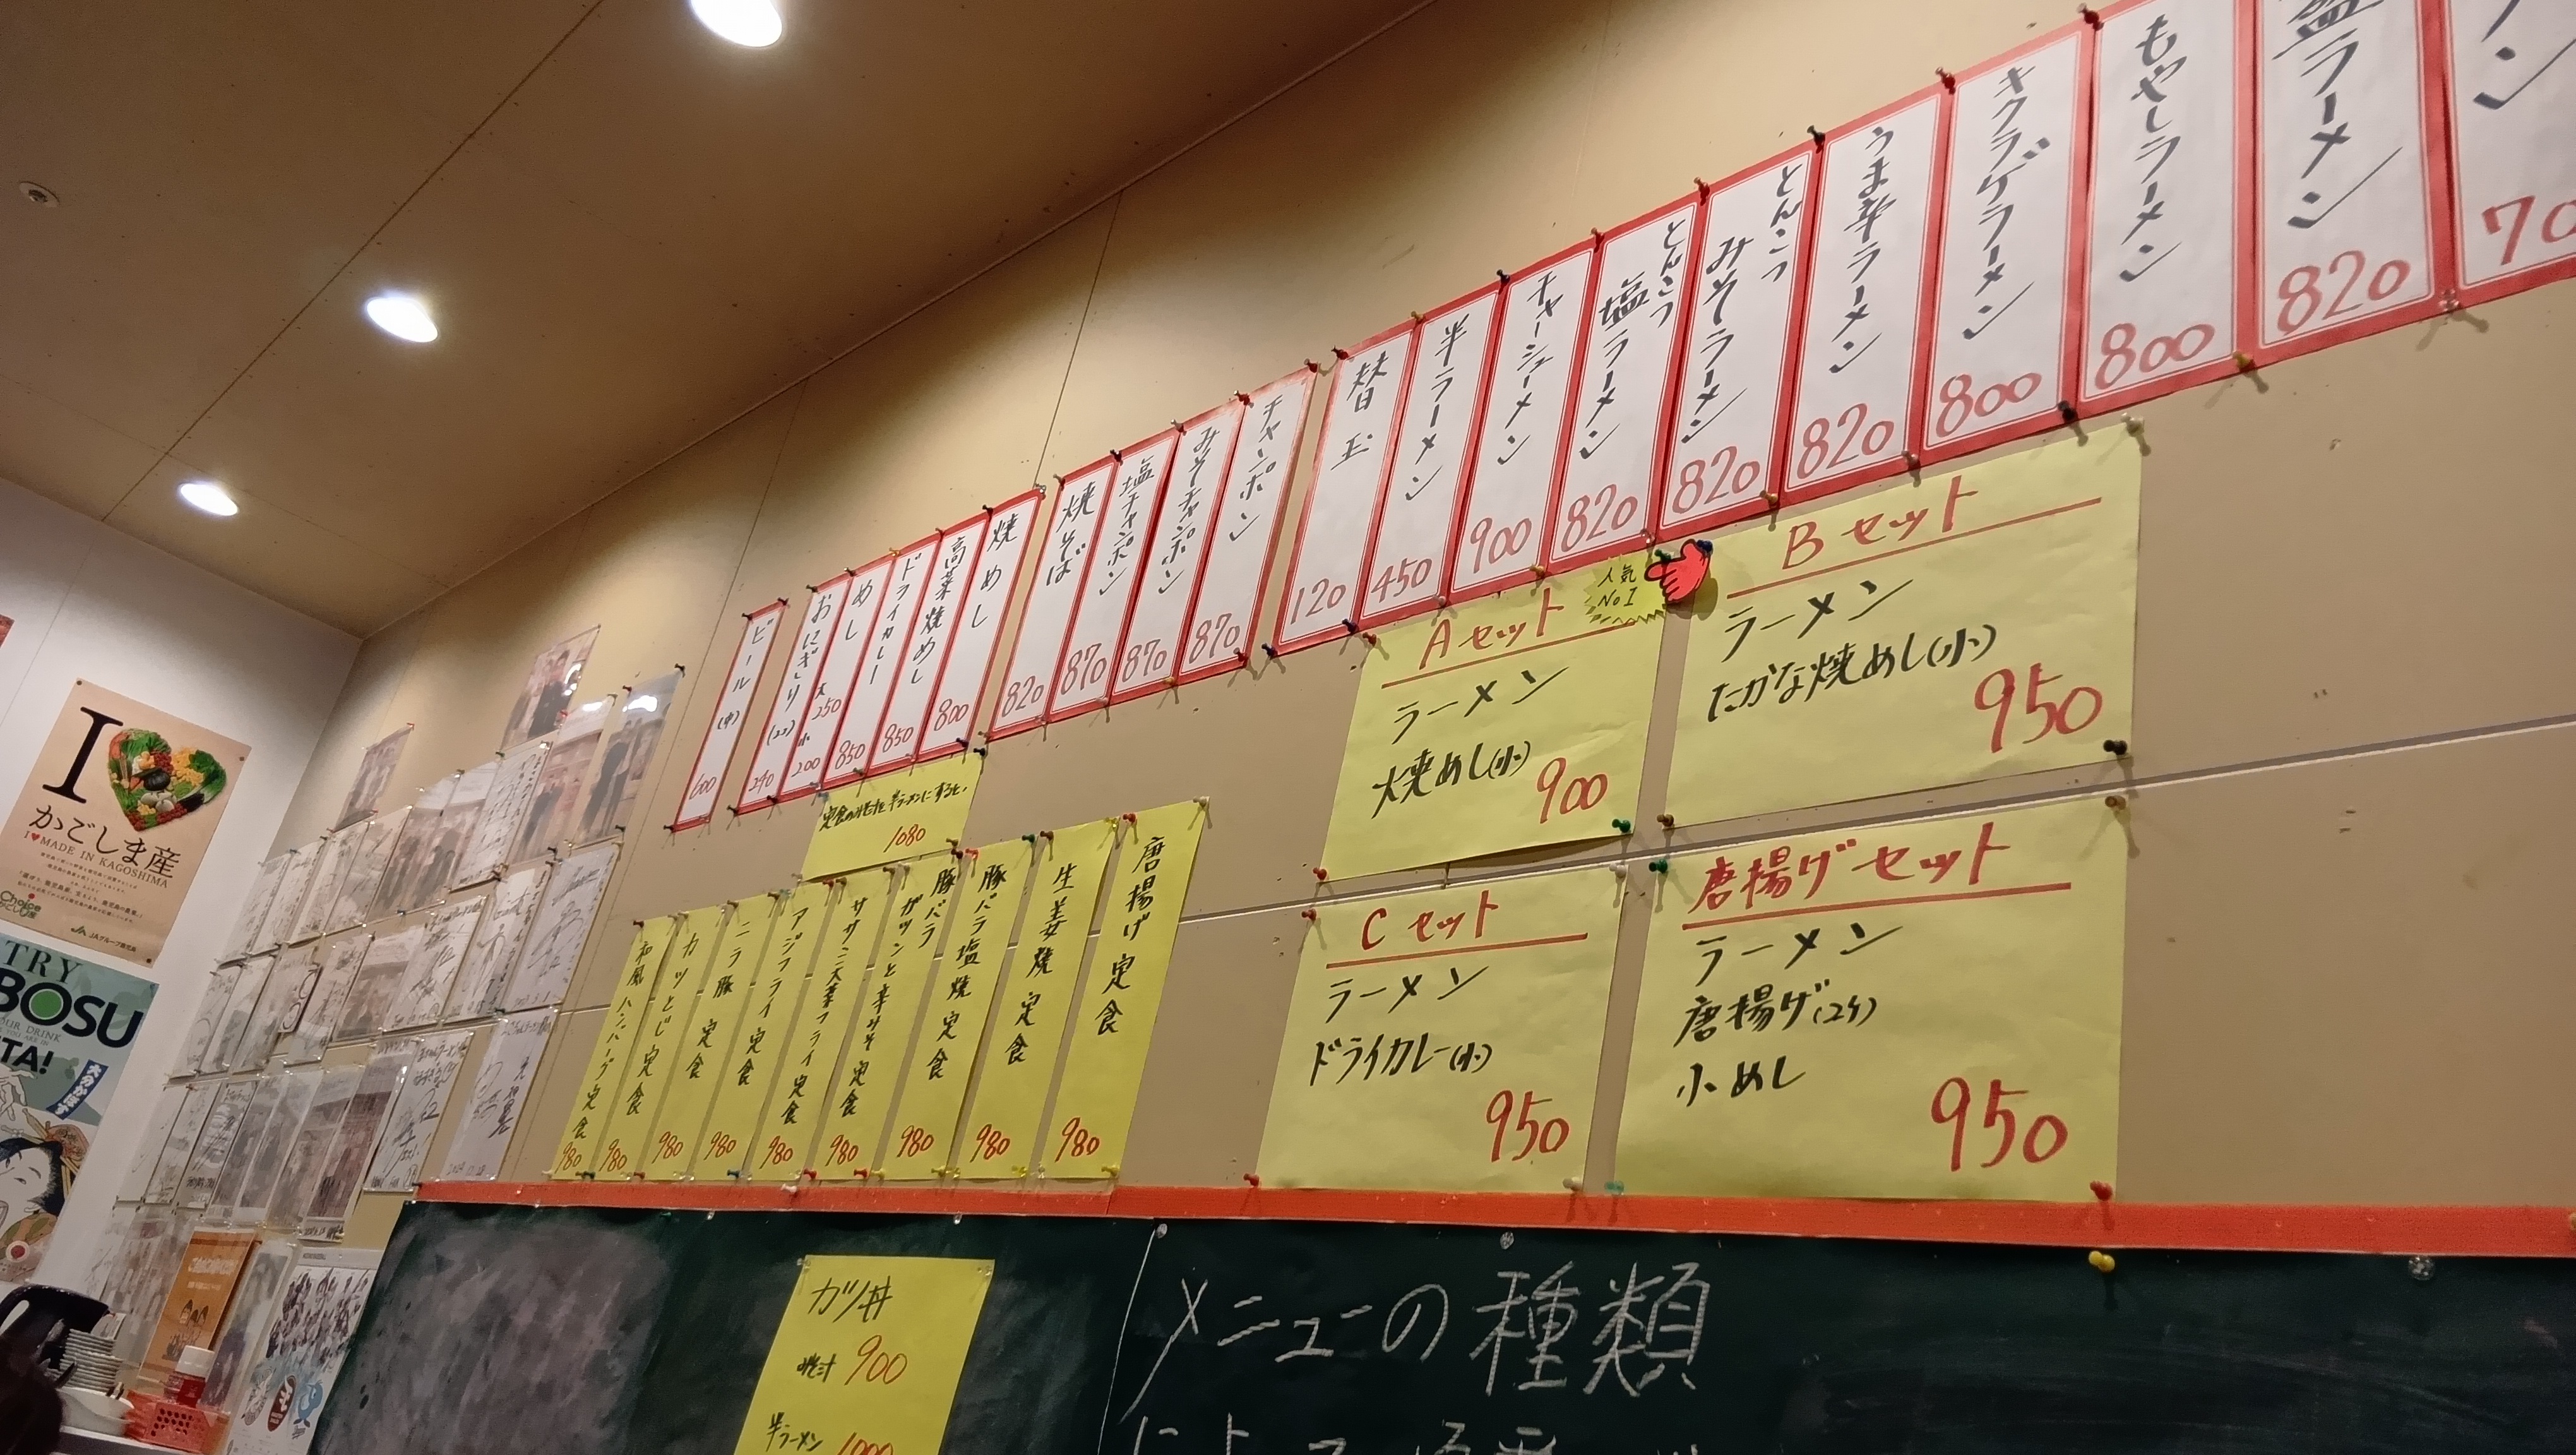 塩ラーメン
820
もやしラーメン
800
キクラゲラーメン
800
うま辛ラーメン
820
とんこつ
みそラーメン
820
とんこつ
塩ラーメン
820
チャーシューメン
900
半ラーメン
450
替玉
120
チャンポン
870
みそチャンポン
870
塩チャンポン
870
焼そば
820
焼めし
800
高菜焼めし
850
ドライカレー
850
めし
大250
小200
おにぎり(2コ)
240
ビール(中)
600
Aセット
人気
No1
ラーメン
焼めし(小)
900
Bセット
ラーメン
たかな焼めし(小)
950
Cセット
ラーメン
ドライカレー(小)
950
唐揚げセット
ラーメン
唐揚げ(2ケ)
小めし
950
定食のみそ汁を半ラーメンにすると、
1080
唐揚げ定食
980
生姜焼定食
980
豚バラ塩焼定食
980
豚バラ
ガツンと辛みそ定食
980
ササミ大葉フライ定食
980
アジフライ定食
980
ニラ豚定食
980
カツとじ定食
980
和風ハンバーグ定食
980
カツ丼
みそ汁 900
半ラーメン
メニューの種類
I
かごしま産
I♥MADE IN KAGOSHIMA
Choice
JAグループ鹿児島
TRY
BOSU
YOUR DRINK
TA!